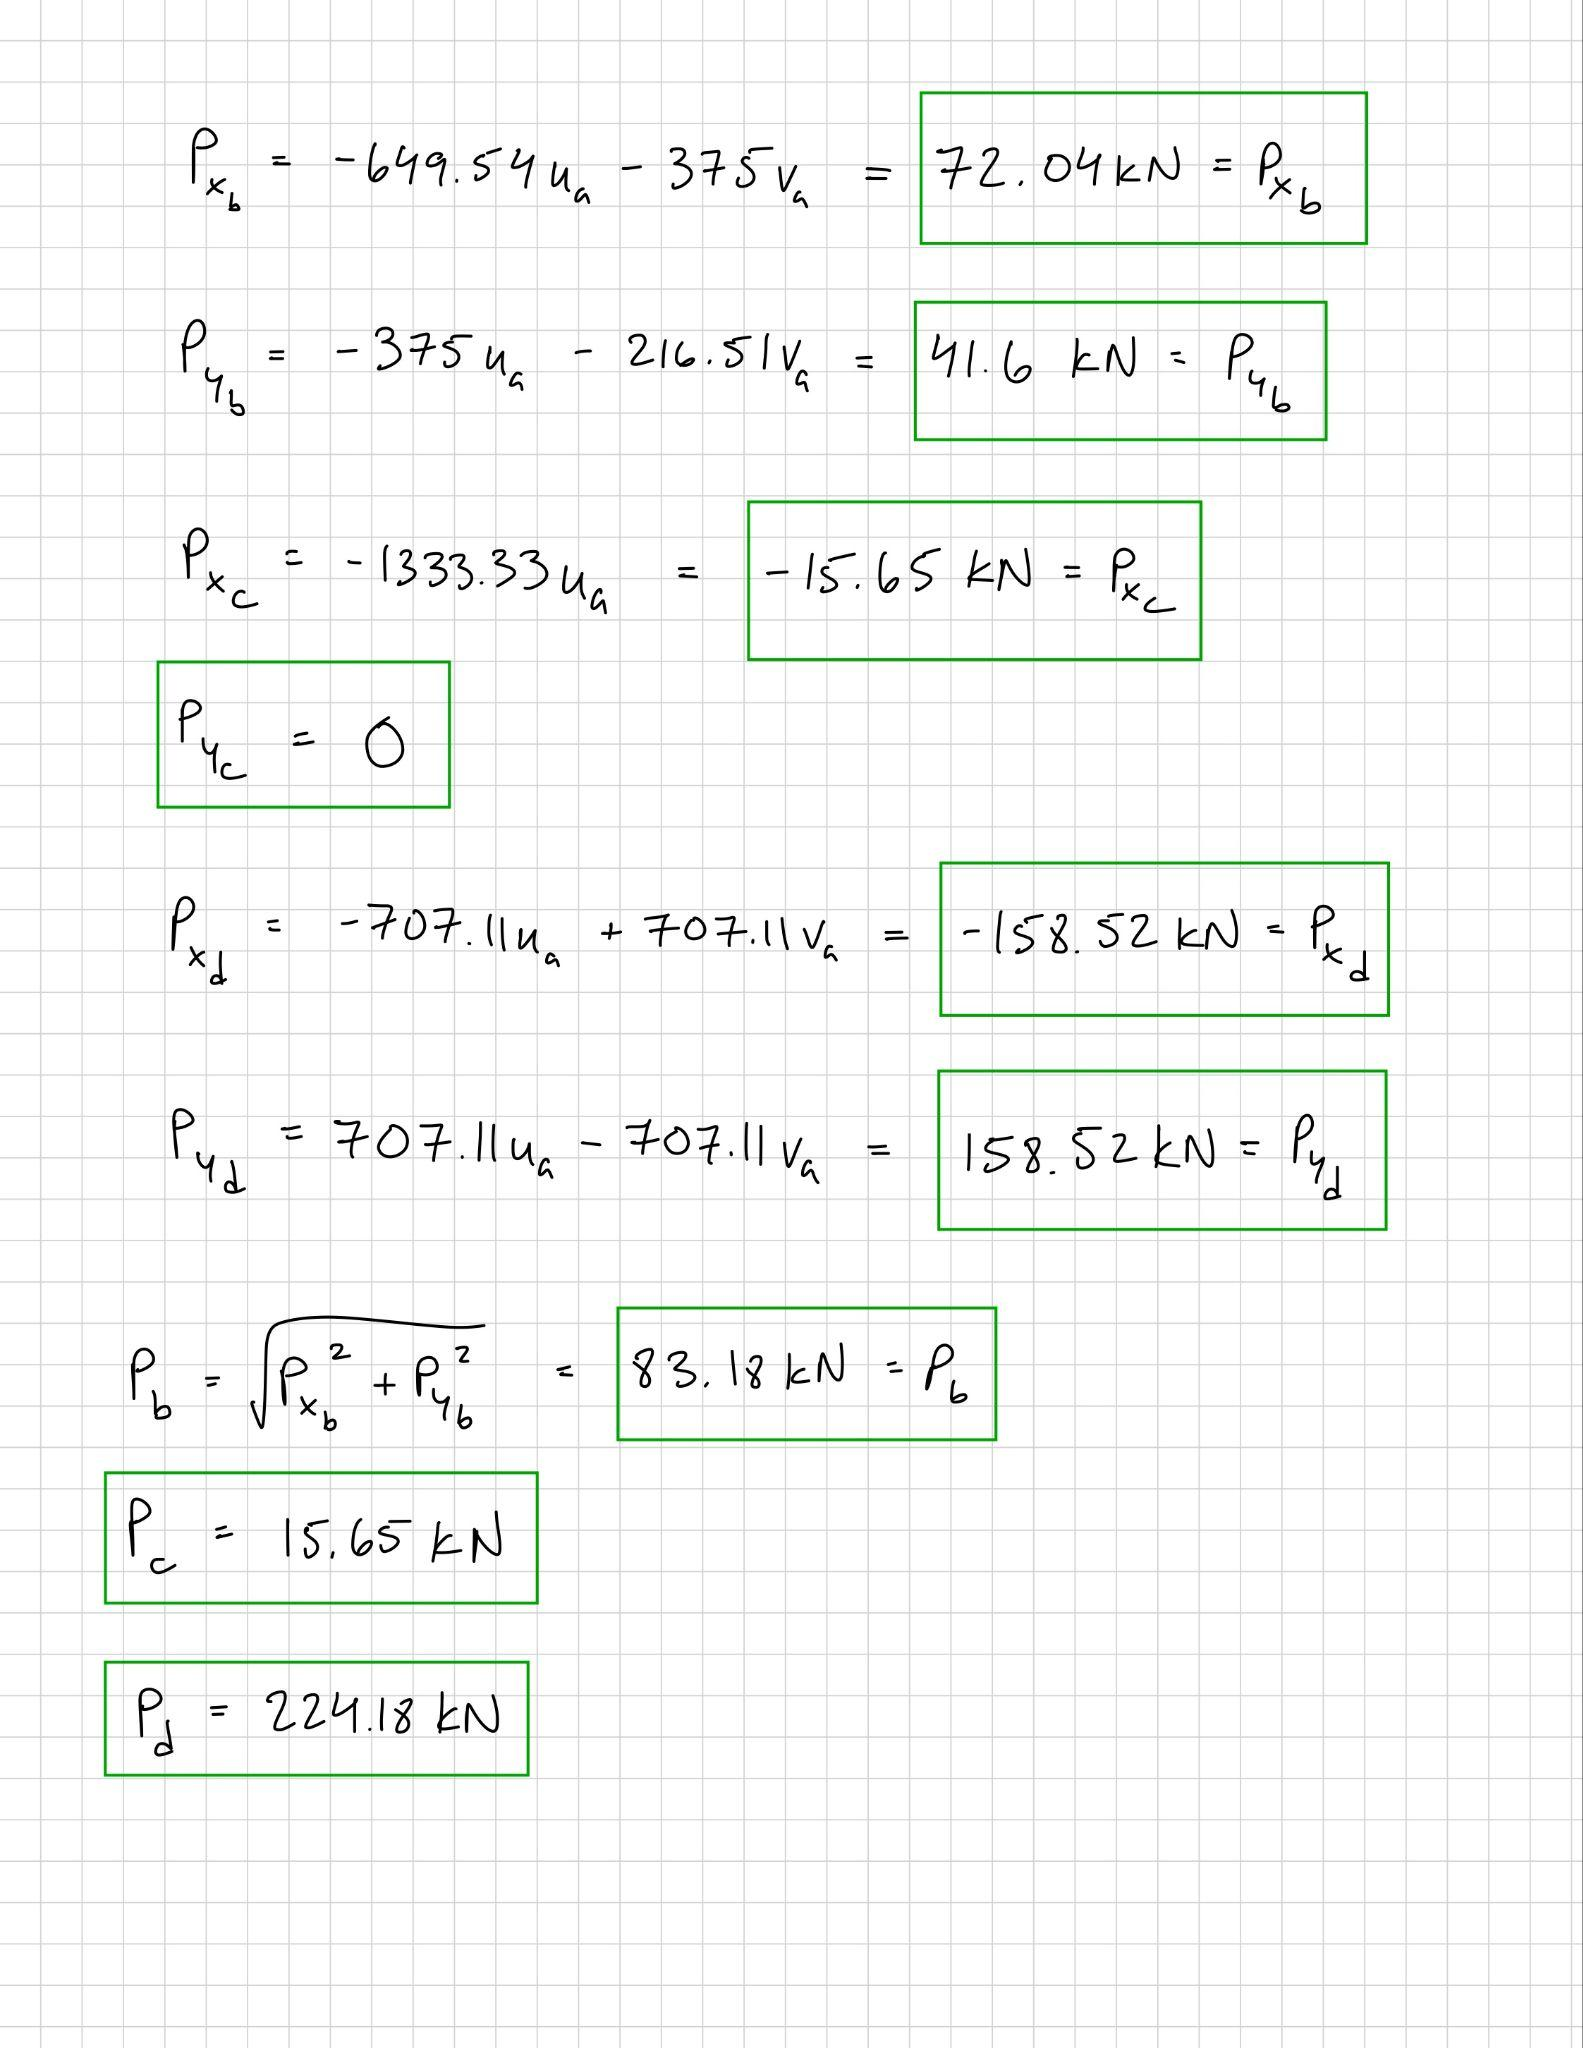 P_{x_b} = -649.54u_a - 375v_a = 72.04kN = P_{x_b}
P_{y_b} = -375u_a - 216.51v_a = 41.6 kN = P_{y_b}
P_{x_c} = -1333.33u_a = -15.65 kN = P_{x_c}
P_{y_c} = 0
P_{x_d} = -707.11u_a + 707.11v_a = -158.52 kN = P_{x_d}
P_{y_d} = 707.11u_a - 707.11v_a = 158.52 kN = P_{y_d}
P_b = √(P_{x_b}² + P_{y_b}²) = 83.18 kN = P_b
P_c = 15.65 kN
P_d = 224.18 kN